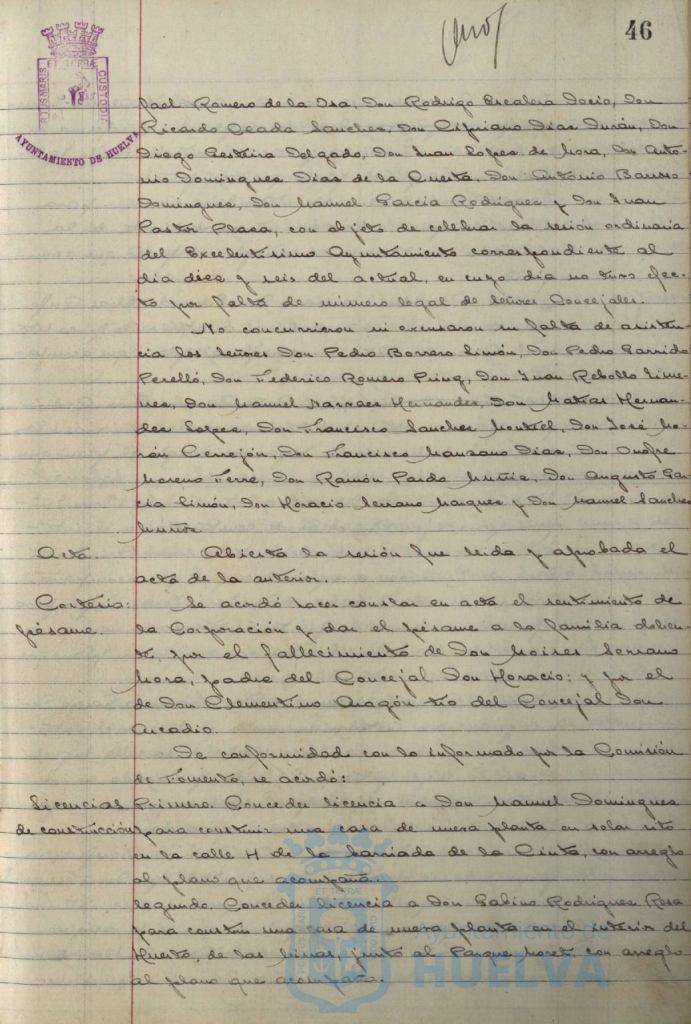 46
PORTUS MARIS ET TERRÆ CUSTODIA
AYUNTAMIENTO DE HUELVA
fael Romero de la Osa, Don Rodrigo Escalera Docio, Don
Ricardo Ceada Sanchez, Don Cipriano Dias Durán, Don
Diego Delgado, Don Juan Lopez de Mora, Don Anto-
nio Dominguez Dias de la Cuesta, Don Antonio Barroso
Dominguez, Don Manuel Garcia Rodriguez y Don Juan
Pastor Plaza, con objeto de celebrar la sesión ordinaria
del Excelentisimo Ayuntamiento correspondiente al
dia diez y seis del actual, en cuyo dia no tuvo efec-
to por falta de número legal de Señores Concejales.
No concurrieron ni excusaron su falta de asisten-
cia los Señores Don Pedro Borrero Limón, Don Pedro Garrido
Perelló, Don Federico Romero Don Juan Rebollo Jime-
nez, Don Manuel Narvaez Hernandez, Don Matias Hernan-
dez Lopez, Don Francisco Sanchez Montiel, Don José Mo-
rán Cerrejón, Don Francisco Manzano Dias, Don Onofre
Moreno Ferre, Don Ramón Pardo Muñiz, Don Augusto Gar-
cia Limón, Don Horacio Serrano Marquez y Don Manuel Sanchez
Muñoz.
Acta. Abierta la sesión fue leida y aprobada el
acta de la anterior.
Cortesia: Se acordó hacer constar en acta el sentimiento de
pésame. la Corporación y dar el pésame a la familia dolien-
te, por el fallecimiento de Don Moises Serrano
Mora, padre del Concejal Don Horacio; y por el
de Don Clementino Aragón tio del Concejal Don
Arcadio.
De conformidad con lo informado por la Comisión
de Fomento, se acordó:
Licencias Primero. Conceder licencia a Don Manuel Dominguez
de construcción para construir una casa de nueva planta en solar sito
en la calle H de la barriada de la Cinta, con arreglo
al plano que acompaña.
Segundo. Conceder licencia a Don Sabino Rodriguez Rosa
para construir una casa de nueva planta en el interior del
Huerto, de las Minas, junto al Parque Moret, con arreglo
al plano que acompaña.
Ayuntamiento de
HUELVA